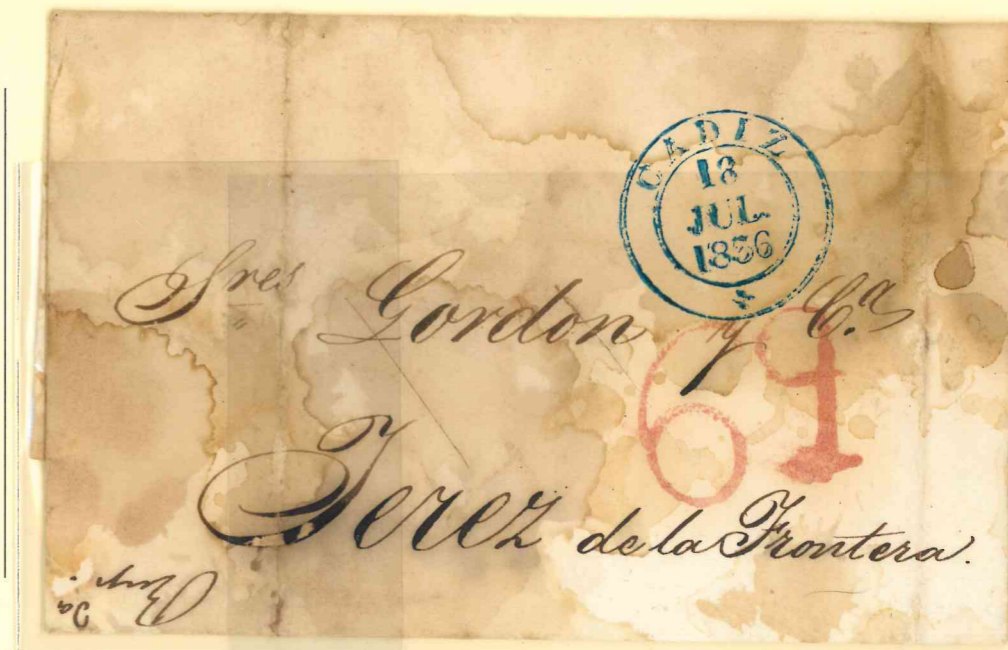 CADIZ
18
JUL.
1836
Sres Gordon y Ca.
61
Jerez de la Frontera.